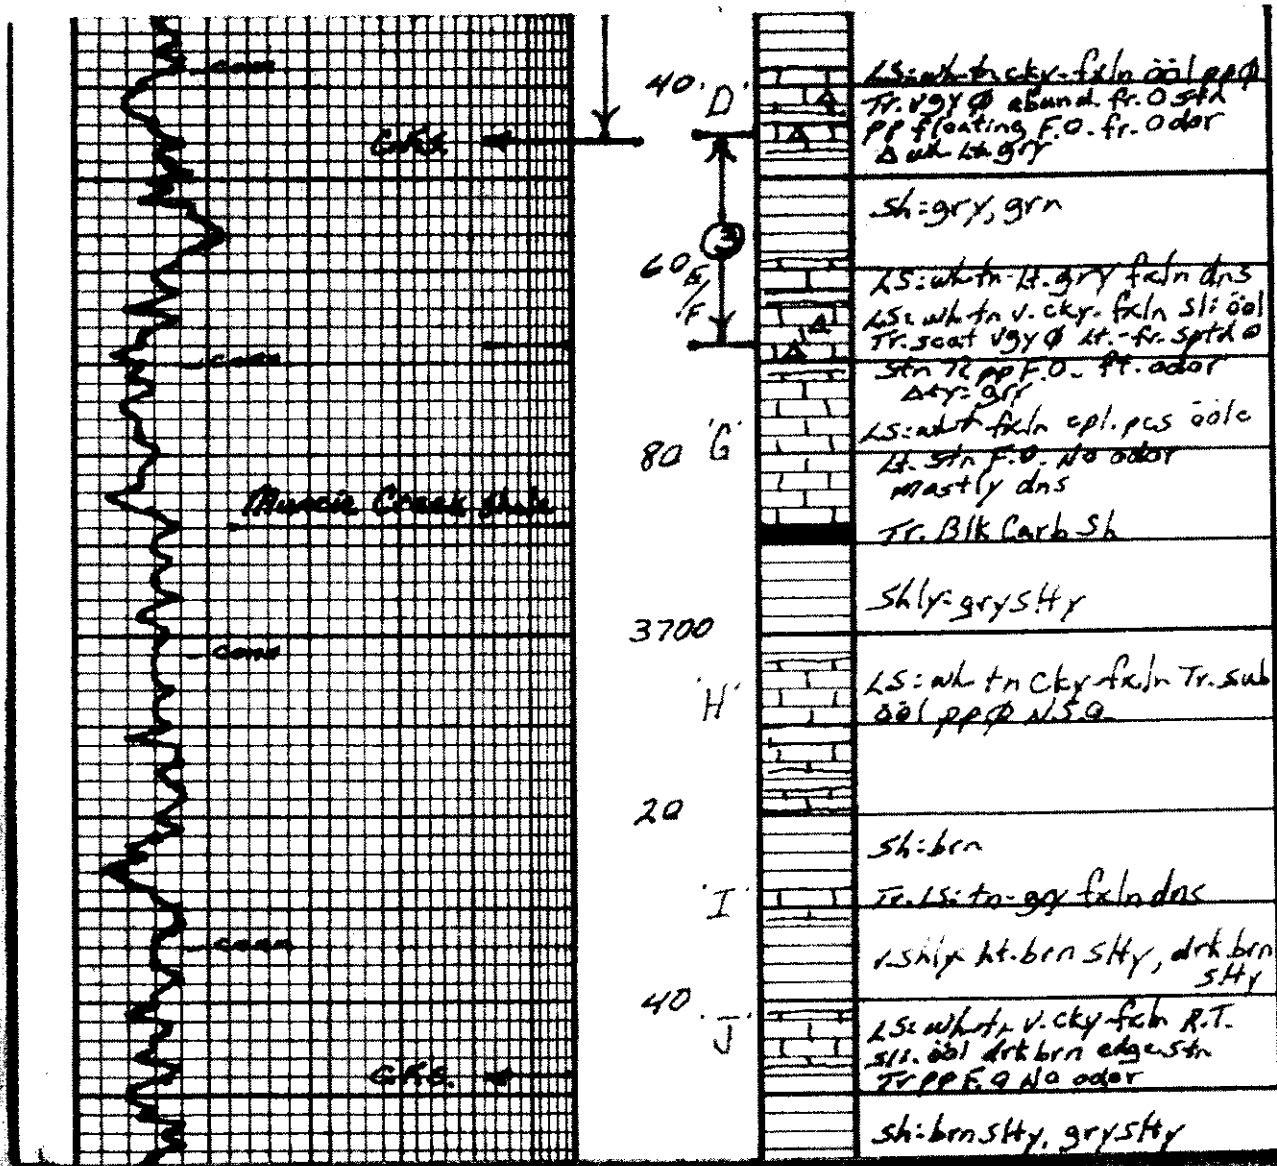 conn
C.F.S.
conn
Muncie Creek Shale
conn
conn
C.F.S.
40
'D'
3
60
E/F
80
'G'
3700
'H'
20
'I'
40
'J'
LS: wh-tn cky-fxln ööl ppØ
Tr. vgyØ abund. fr. O stn
pp floating F.O. fr. Odor
Δ wh Lt. gry
Sh: gry, grn
LS: wh-tn-Lt. gry fxln dns
LS: wh-tn v. cky-fxln sli ööl
Tr. scat vgyØ Lt.-fr. sptd O
Stn Tr pp F.O. ft. odor
Δ gry
LS: wh fxln cpl. pcs öölc
Lt. Stn F.O. No odor
mostly dns
Tr. Blk Carb Sh
Shly-gry Slty
LS: wh tn Cky-fxln Tr. sub
ööl ppØ N.S.O.
Sh: brn
Tr. LS: tn-gry fxln dns
v. shly Lt. brn Slty, drk brn
Slty
LS: wh-tn v. cky-fxln R.T.
sli. ööl drk brn edge stn
Tr pp F.O No odor
Sh: brn Slty, gry Slty